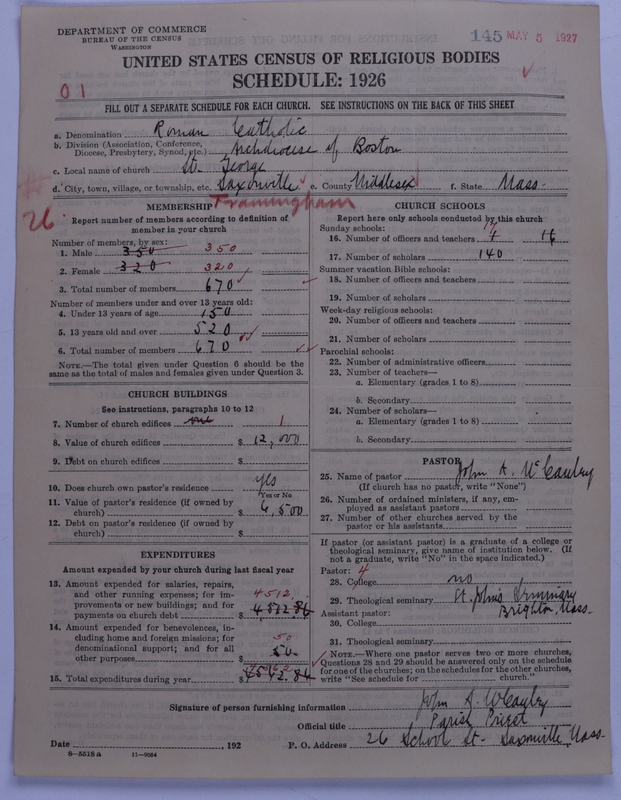 DEPARTMENT OF COMMERCE
BUREAU OF THE CENSUS
WASHINGTON
145 MAY 5 1927
UNITED STATES CENSUS OF RELIGIOUS BODIES
SCHEDULE: 1926
01
FILL OUT A SEPARATE SCHEDULE FOR EACH CHURCH. SEE INSTRUCTIONS ON THE BACK OF THIS SHEET
a. Denomination Roman Catholic
b. Division (Association, Conference, Diocese, Presbytery, Synod, etc.) Archdiocese of Boston
c. Local name of church St. George
d. City, town, village, or township, etc. Saxonville e. County Middlesex f. State Mass.
Framingham
26.
MEMBERSHIP
Report number of members according to definition of
member in your church
Number of members, by sex:
1. Male 350 350
2. Female 320 320
3. Total number of members 670
Number of members under and over 13 years old:
4. Under 13 years of age 150
5. 13 years old and over 520
6. Total number of members 670
NOTE.—The total given under Question 6 should be the
same as the total of males and females given under Question 3.
CHURCH BUILDINGS
See instructions, paragraphs 10 to 12
7. Number of church edifices one 1
8. Value of church edifices $ 12,000
9. Debt on church edifices $
10. Does church own pastor's residence yes
Yes or No
11. Value of pastor's residence (if owned by
church) $ 6,500
12. Debt on pastor's residence (if owned by
church) $
EXPENDITURES
Amount expended by your church during last fiscal year
13. Amount expended for salaries, repairs,
and other running expenses; for im-
provements or new buildings; and for
payments on church debt $ 4512
14. Amount expended for benevolences, in-
cluding home and foreign missions; for
denominational support; and for all
other purposes $ 50 50
15. Total expenditures during year $
CHURCH SCHOOLS
Report here only schools conducted by this church
Sunday schools:
16. Number of officers and teachers 16
17. Number of scholars 140
Summer vacation Bible schools:
18. Number of officers and teachers
19. Number of scholars
Week-day religious schools:
20. Number of officers and teachers
21. Number of scholars
Parochial schools:
22. Number of administrative officers
23. Number of teachers—
a. Elementary (grades 1 to 8)
b. Secondary
24. Number of scholars—
a. Elementary (grades 1 to 8)
b. Secondary
PASTOR
25. Name of pastor John A. McCauley
(If church has no pastor, write "None")
26. Number of ordained ministers, if any, em-
ployed as assistant pastors
27. Number of other churches served by the
pastor or his assistants
If pastor (or assistant pastor) is a graduate of a college or
theological seminary, give name of institution below. (If
not a graduate, write "No" in the space indicated.)
Pastor: 4
28. College no
29. Theological seminary St. John's Seminary
Brighton, Mass.
Assistant pastor:
30. College
31. Theological seminary
NOTE.—Where one pastor serves two or more churches,
Questions 28 and 29 should be answered only on the schedule
for one of the churches; on the schedules for the other churches,
write "See schedule for church."
Signature of person furnishing information John A. McCauley
Official title Parish Priest
Date , 192 P. O. Address 26 School St. Saxonville, Mass.
8—5518 a 11—9084